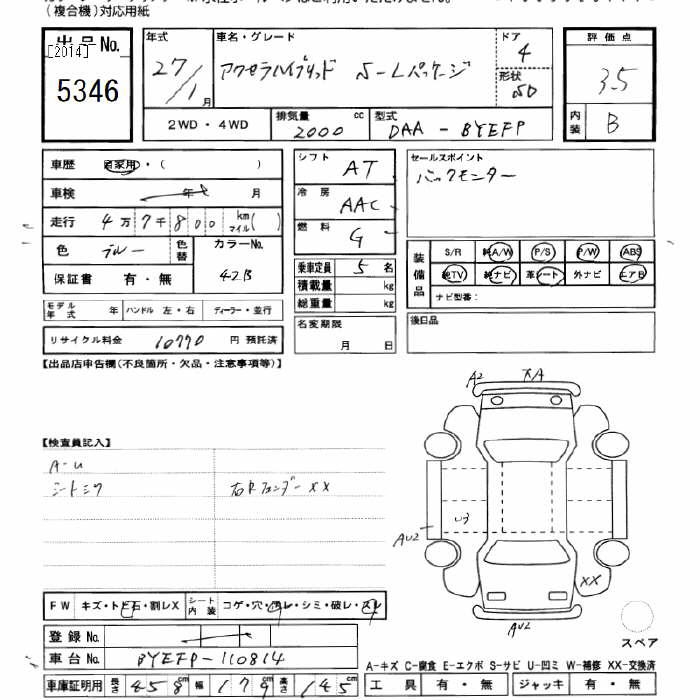 (複合機)対応用紙
出品No.
[2014]
5346
年式 27/1月
車名・グレード アクセラハイブリッド S-Lパッケージ
ドア 4
形状 SD
評価点 3.5
内装 B
2WD・4WD
排気量 2000 cc
型式 DAA-BYEFP
車歴 自家用・( )
車検 年 月
走行 4万7千800 km マイル( )
色 ブルー 色替
カラーNo. 42B
保証書 有・無
シフト AT
冷房 AAC
燃料 G
乗車定員 5 名
積載量 kg
総重量 kg
セールスポイント
バックモニター
装備品 S/R 純A/W P/S P/W ABS
純TV 純ナビ 革シート 外ナビ エアB
ナビ型番:
モデル年式 年 ハンドル 左・右 ディーラー・並行
リサイクル料金 10770 円 預託済
名変期限 月 日
後日品
【出品店申告欄(不良箇所・欠品・注意事項等)】
A2 XA
【検査員記入】
A-U
シートミワ 右Rフェンダー XX
U3
AU2
XX
AU2
FW キズ・トビ石・割レX シート内装 コゲ・穴・汚レ・シミ・破レ・スレ
登録No.
車台No. BYEFP-110814
車庫証明用 長さ 458cm 幅 179cm 高さ 145cm
スペア
A-キズ C-腐食 E-エクボ S-サビ U-凹ミ W-補修 XX-交換済
工具 有・無 ジャッキ 有・無